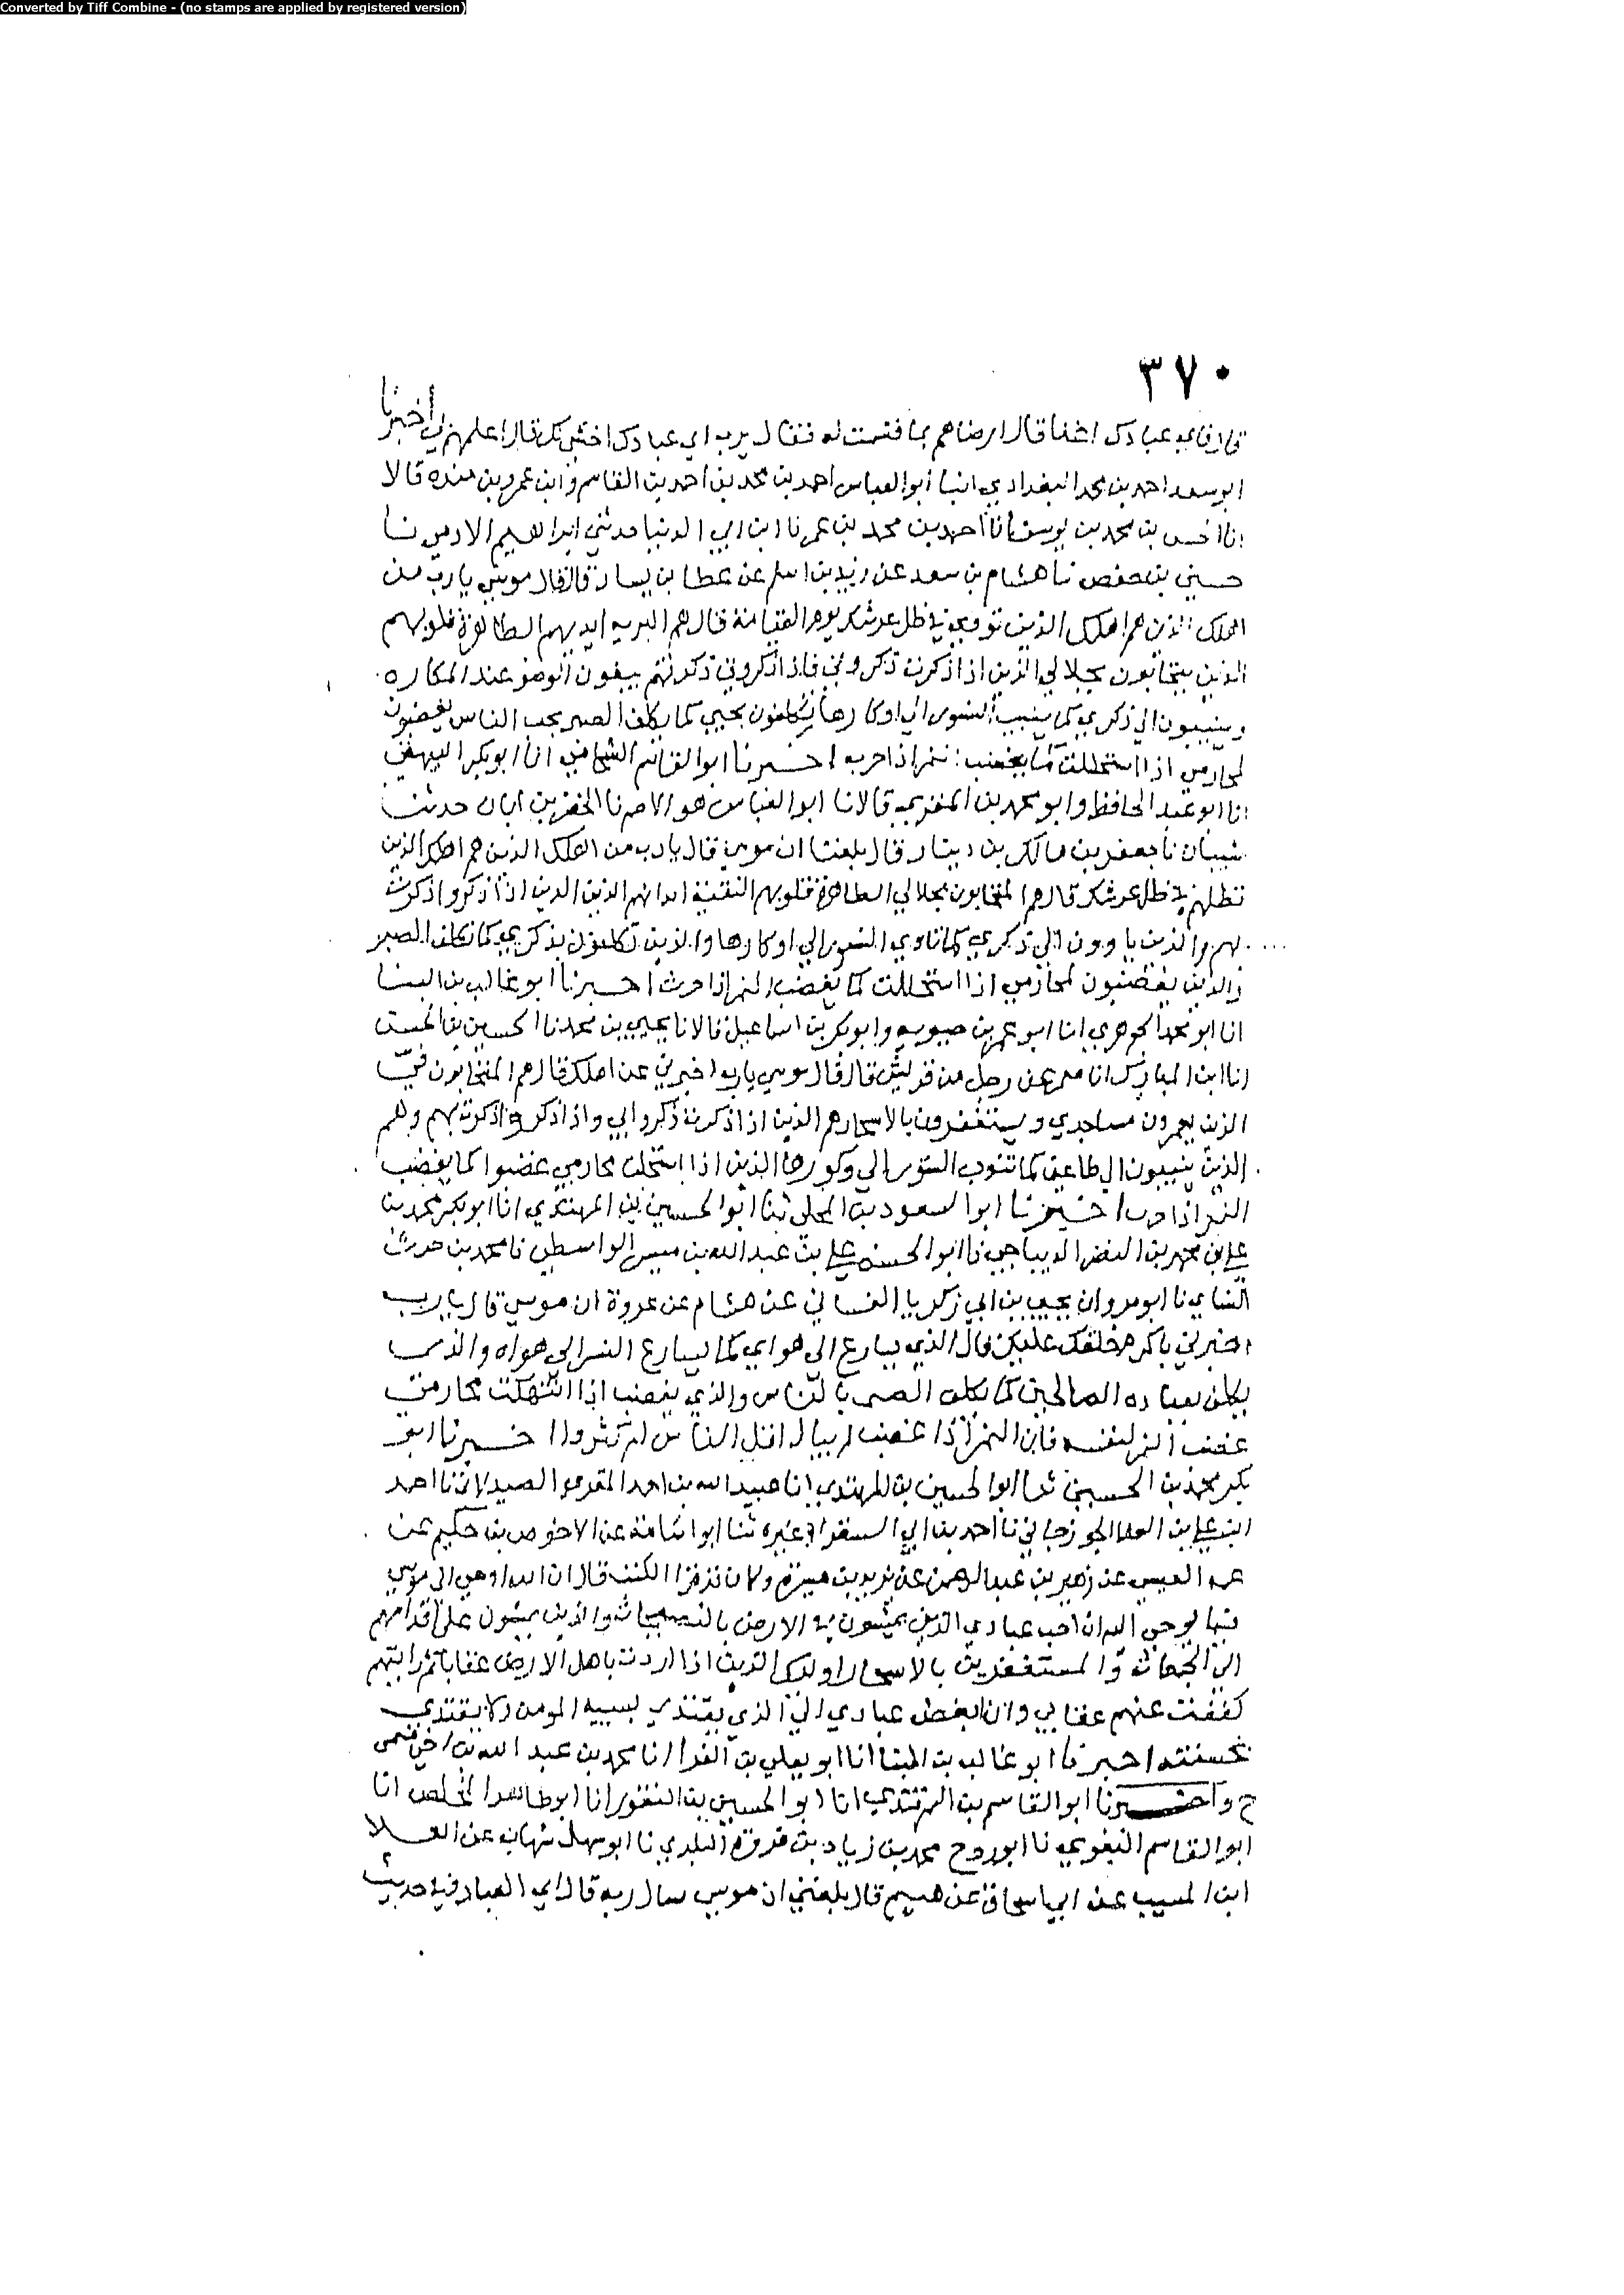 Converted by Tiff Combine - (no stamps are applied by registered version)
٣٧٠
قال فاي عبادك اغنا قال ارضاهم بما قسمت له فقال يرب اي عبادك اخشى لك قال اعلمهم بي أخبرنا
ابو سعد احمد بن محمد البغدادي انبا أبو العباس احمد بن محمد بن احمد بن القاسم وابن عمرو بن منده قالا
انا الحسن بن محمد بن يوسف أنا احمد بن محمد بن عمر نا ابن ابي الدنيا حدثني ابراهيم الادمي نا
حسين بن حفص نا هشام بن سعد عن زيد بن اسلم عن عطا بن يسار قال قال موسى يا رب من
اهلك الذين هم اهلك الذين تؤويهم في ظل عرشك يوم القيامة قال هم البريه ايديهم الطاهرة قلوبهم
الذين يتحابون بجلالي الذين اذا ذكرت ذكروني فاذا ذكروني ذكرتهم يسبغون الوضو عند المكاره
وينيبون الي ذكري كما ينيب النسور الي اوكارها يكلفون بحبي كما يكلف الصبي بحب الناس يغضبون
لمحارمي اذا استحللت كما يغضب النمر اذا حرب اخبرنا ابو القاسم الشحامي انا ابو بكر البيهقي
انا ابو عبد الحافظ وابو محمد بن المقري قالا نا ابو العباس هو الاصم نا الخضر بن ابان حدثنا
شيبان نا جعفر بن مالك بن دينار قال بلغنا ان موسى قال يا رب من اهلك الذين هم اهلك الذين
تظلهم في ظل عرشك قال هم المتحابون بجلالي الطاهرة قلوبهم النقية ابدانهم الذين الذين اذا ذكروا ذكرت
بهم والذين ياوون الي ذكري كما تاوي النسور الي اوكارها والذين تكلفون بذكري كما تكلف الصبي
والذين يغضبون لمحارمي اذا استحللت كما يغضب النمر اذا حرب اخبرنا ابو غالب بن البنا
انا ابو محمد الجوهري انا ابو عمر بن حيويه وابو بكر بن اسماعيل قالا نا يحيى بن محمد نا الحسين بن الحسن
انا ابن المبارك انا معمر عن رجل من قريش قال قال موسى يا رب اخبرني عن اهلك قال هم المتحابون فيّ
الذين يعمرون مساجدي ويستغفرون بالاسحار هم الذين اذا ذكرت ذكروا بي واذا ذكروا ذكرت بهم وهم
الذين ينيبون الي طاعتي كما تنوب النسور الي وكورها الذين اذا استحلت محارمي غضبوا كما يغضب
النمر اذا حرب اخبرنا ابو السعود بن المجلي ثنا ابو الحسين بن المهتدي انا ابو بكر محمد بن
علي بن محمد بن النضر الديباجي نا ابو الحسن علي بن عبد الله بن مبشر الواسطي نا محمد بن حرب
النشاي نا ابو مروان يحيى بن ابي زكريا الغساني عن هشام عن عروة ان موسى قال يا رب
اخبرني باكرم خلقك عليك قال الذي يسارع الى هواي كما يسارع النسر الى هواه والذي
يكلف بعباده الصالحين كما يكلف الصبي بالناس والذي يغضب اذا انتهكت محارمي
غضب النمر لنفسه فان النمر اذا غضب لم يبال اقل الناس ام كثروا اخبرنا ابو
بكر محمد بن الحسين ثنا ابو الحسين بن المهتدي انا عبيد الله بن احمد المقري الصيدلاني نا احمد
ابن علي بن العلا الجوزجاني نا احمد بن ابي السفر غيره ثنا ابو اسامة عن الاحوص بن حكيم عن
عبد العبسي عن زهير بن عبد الرحمن عن يزيد بن ميسرة وكان قد قرا الكتب قال ان الله اوحى الى موسى
فيما يوحي اليه ان احب عبادي الذين يمشون في الارض بالنصيحة والذين يمشون على اقدامهم
الى الجمعات والمستغفرين بالاسحار اولئك الذين اذا اردت باهل الارض عقابا ثم رايتهم
كففت عنهم عقابي وان ابغض عبادي الي الذي يقتدي بسيية المومن ولا يقتدي
بحسنته اخبرنا ابو غالب بن البنا انا ابو يعلي بن الفرا انا محمد بن عبد الله بن اخي ميمي
ح واخبرنا ابو القاسم بن السمرقندي انا ابو الحسين بن النقور انا ابو طاهر المخلص انا
ابو القاسم البغوي نا ابو روح محمد بن زياد بن فروة البلدي نا ابو سهل شهاب عن العلا
ابن المسيب عن ابي اسحاق عن هيثم قال بلغني ان موسى سال ربه قال اي العباد فيه حديث